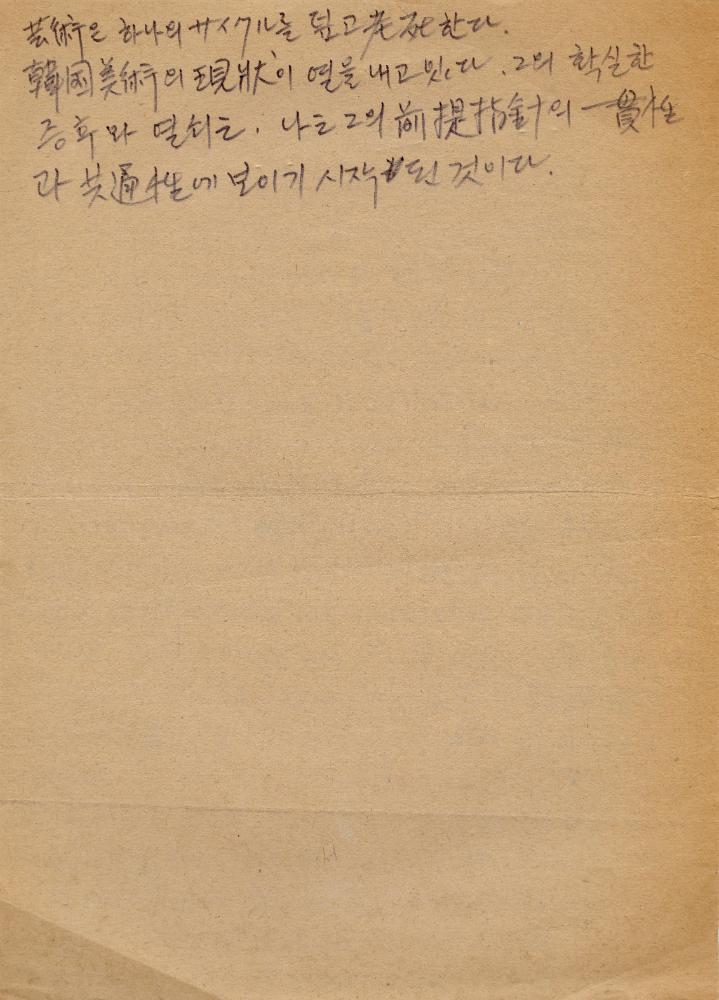 芸術은 하나의 サイクル를 돌고 老死한다.
韓國美術의 現狀이 열을 내고 있다. 그의 확실한
증후와 열쇠는. 나는 그의 前提指針의 一貫性
과 共通性에 보이기 시작된 것이다.